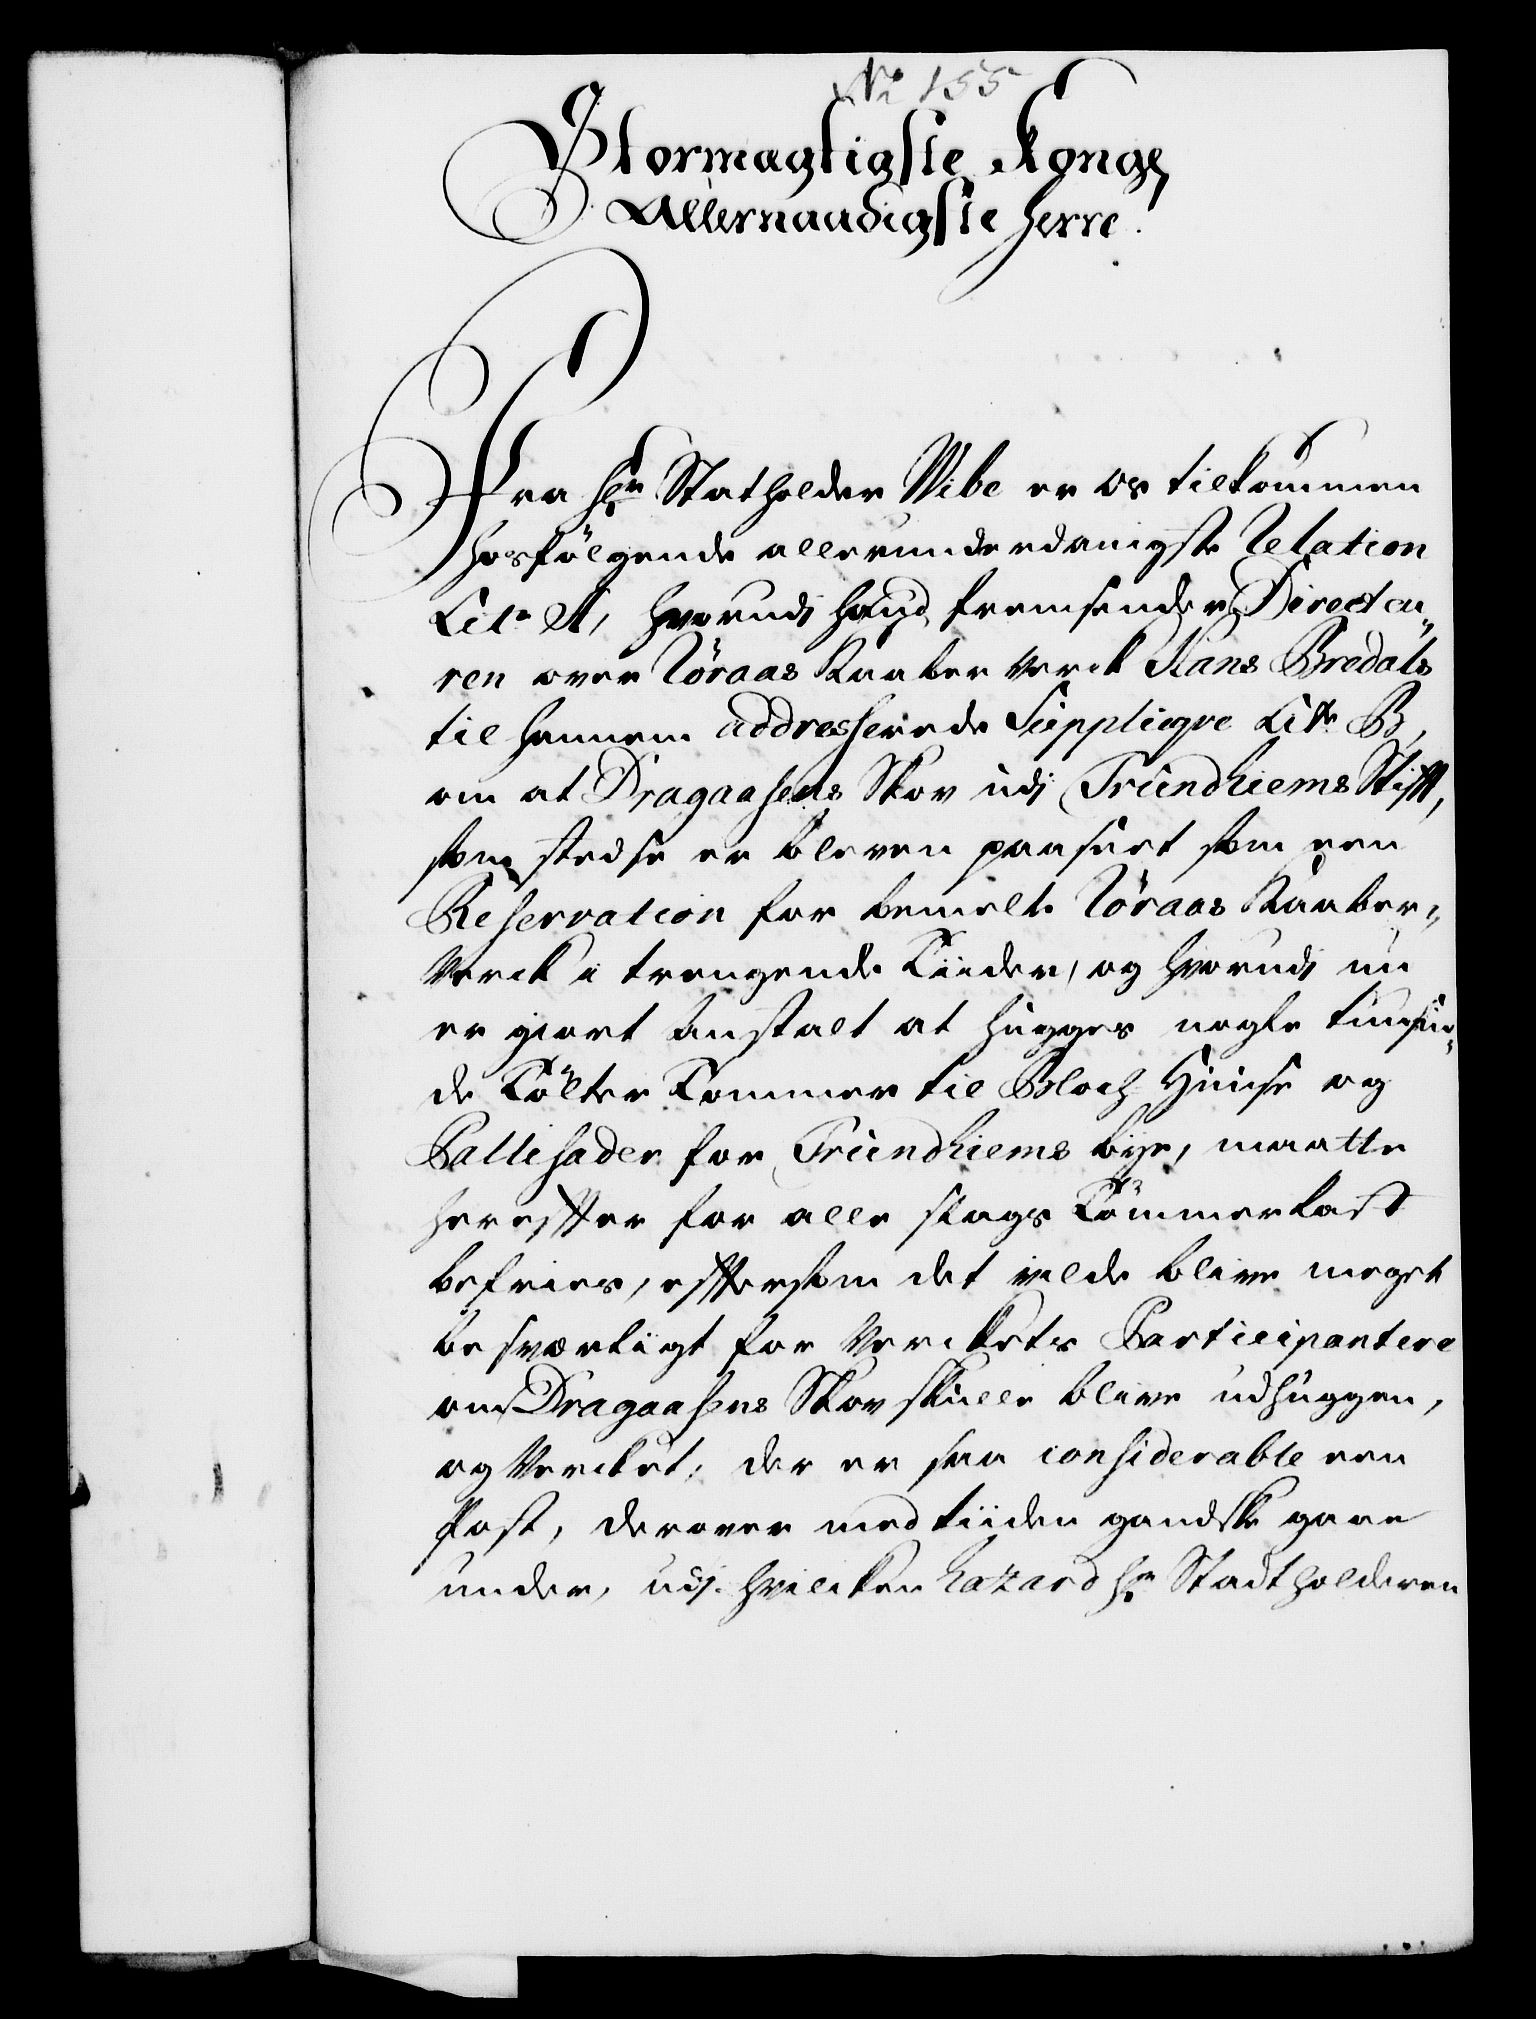 No 155
Stormagtigste Konge
Allernaadigste Herre.
Fra Hr Statholder Wibe er os tilkommen
hosfölgende allerunderdanigste Relation
Litr A, hvorudj hand fremsender Directeu„
ren over Röraas Kaaber Verck Hans Bredals
til hannem addresserede Supplicqve Litr B,
om at Dragaasens Skov udj Trundhiems Stifft,
som stedse er bleven paaseet som een
Reservation for bemelte Röraas Kaaber„
Verck i trengende Tiider, og hvorudj nu
er giort Anstalt at hugges nogle tusin„
de Tölter Tömmer til Bloch Huuse og
Pallisader for Trundhiems bye, maatte
hereffter for alle slags Tömmerlast
befries, efftersom det vilde blive meget
besværligt for Verckets Participantere
om Dragaasens Skov skulle blive udhuggen,
og Vercket, der er saa considerable een
Post, derover med tiiden gandske gaae
under, udj hvilcken hazard Hr Stadtholderen